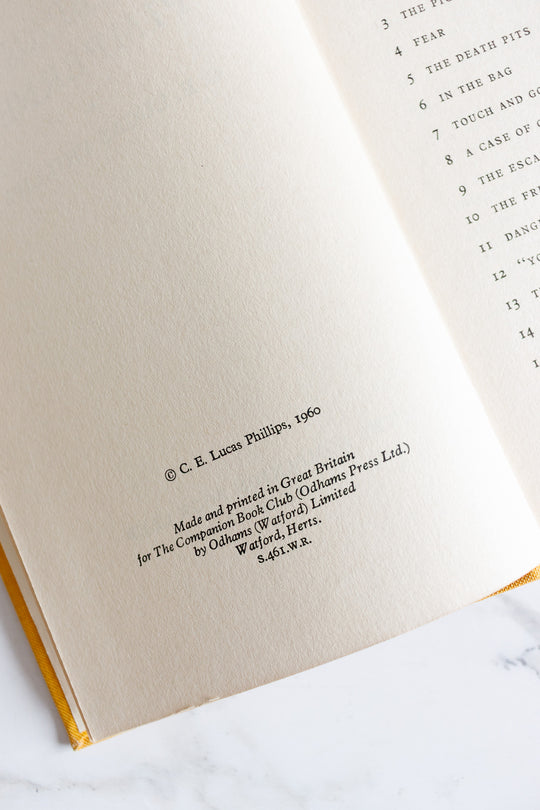 © C. E. Lucas Phillips, 1960
Made and printed in Great Britain
for The Companion Book Club (Odhams Press Ltd.)
by Odhams (Watford) Limited
Watford, Herts.
S.461.W.R.
3 THE
4 FEAR
5 THE DEATH PITS
6 IN THE BAG
7 TOUCH AND
8 A CASE OF
9 THE
10 THE
11
12
13
14